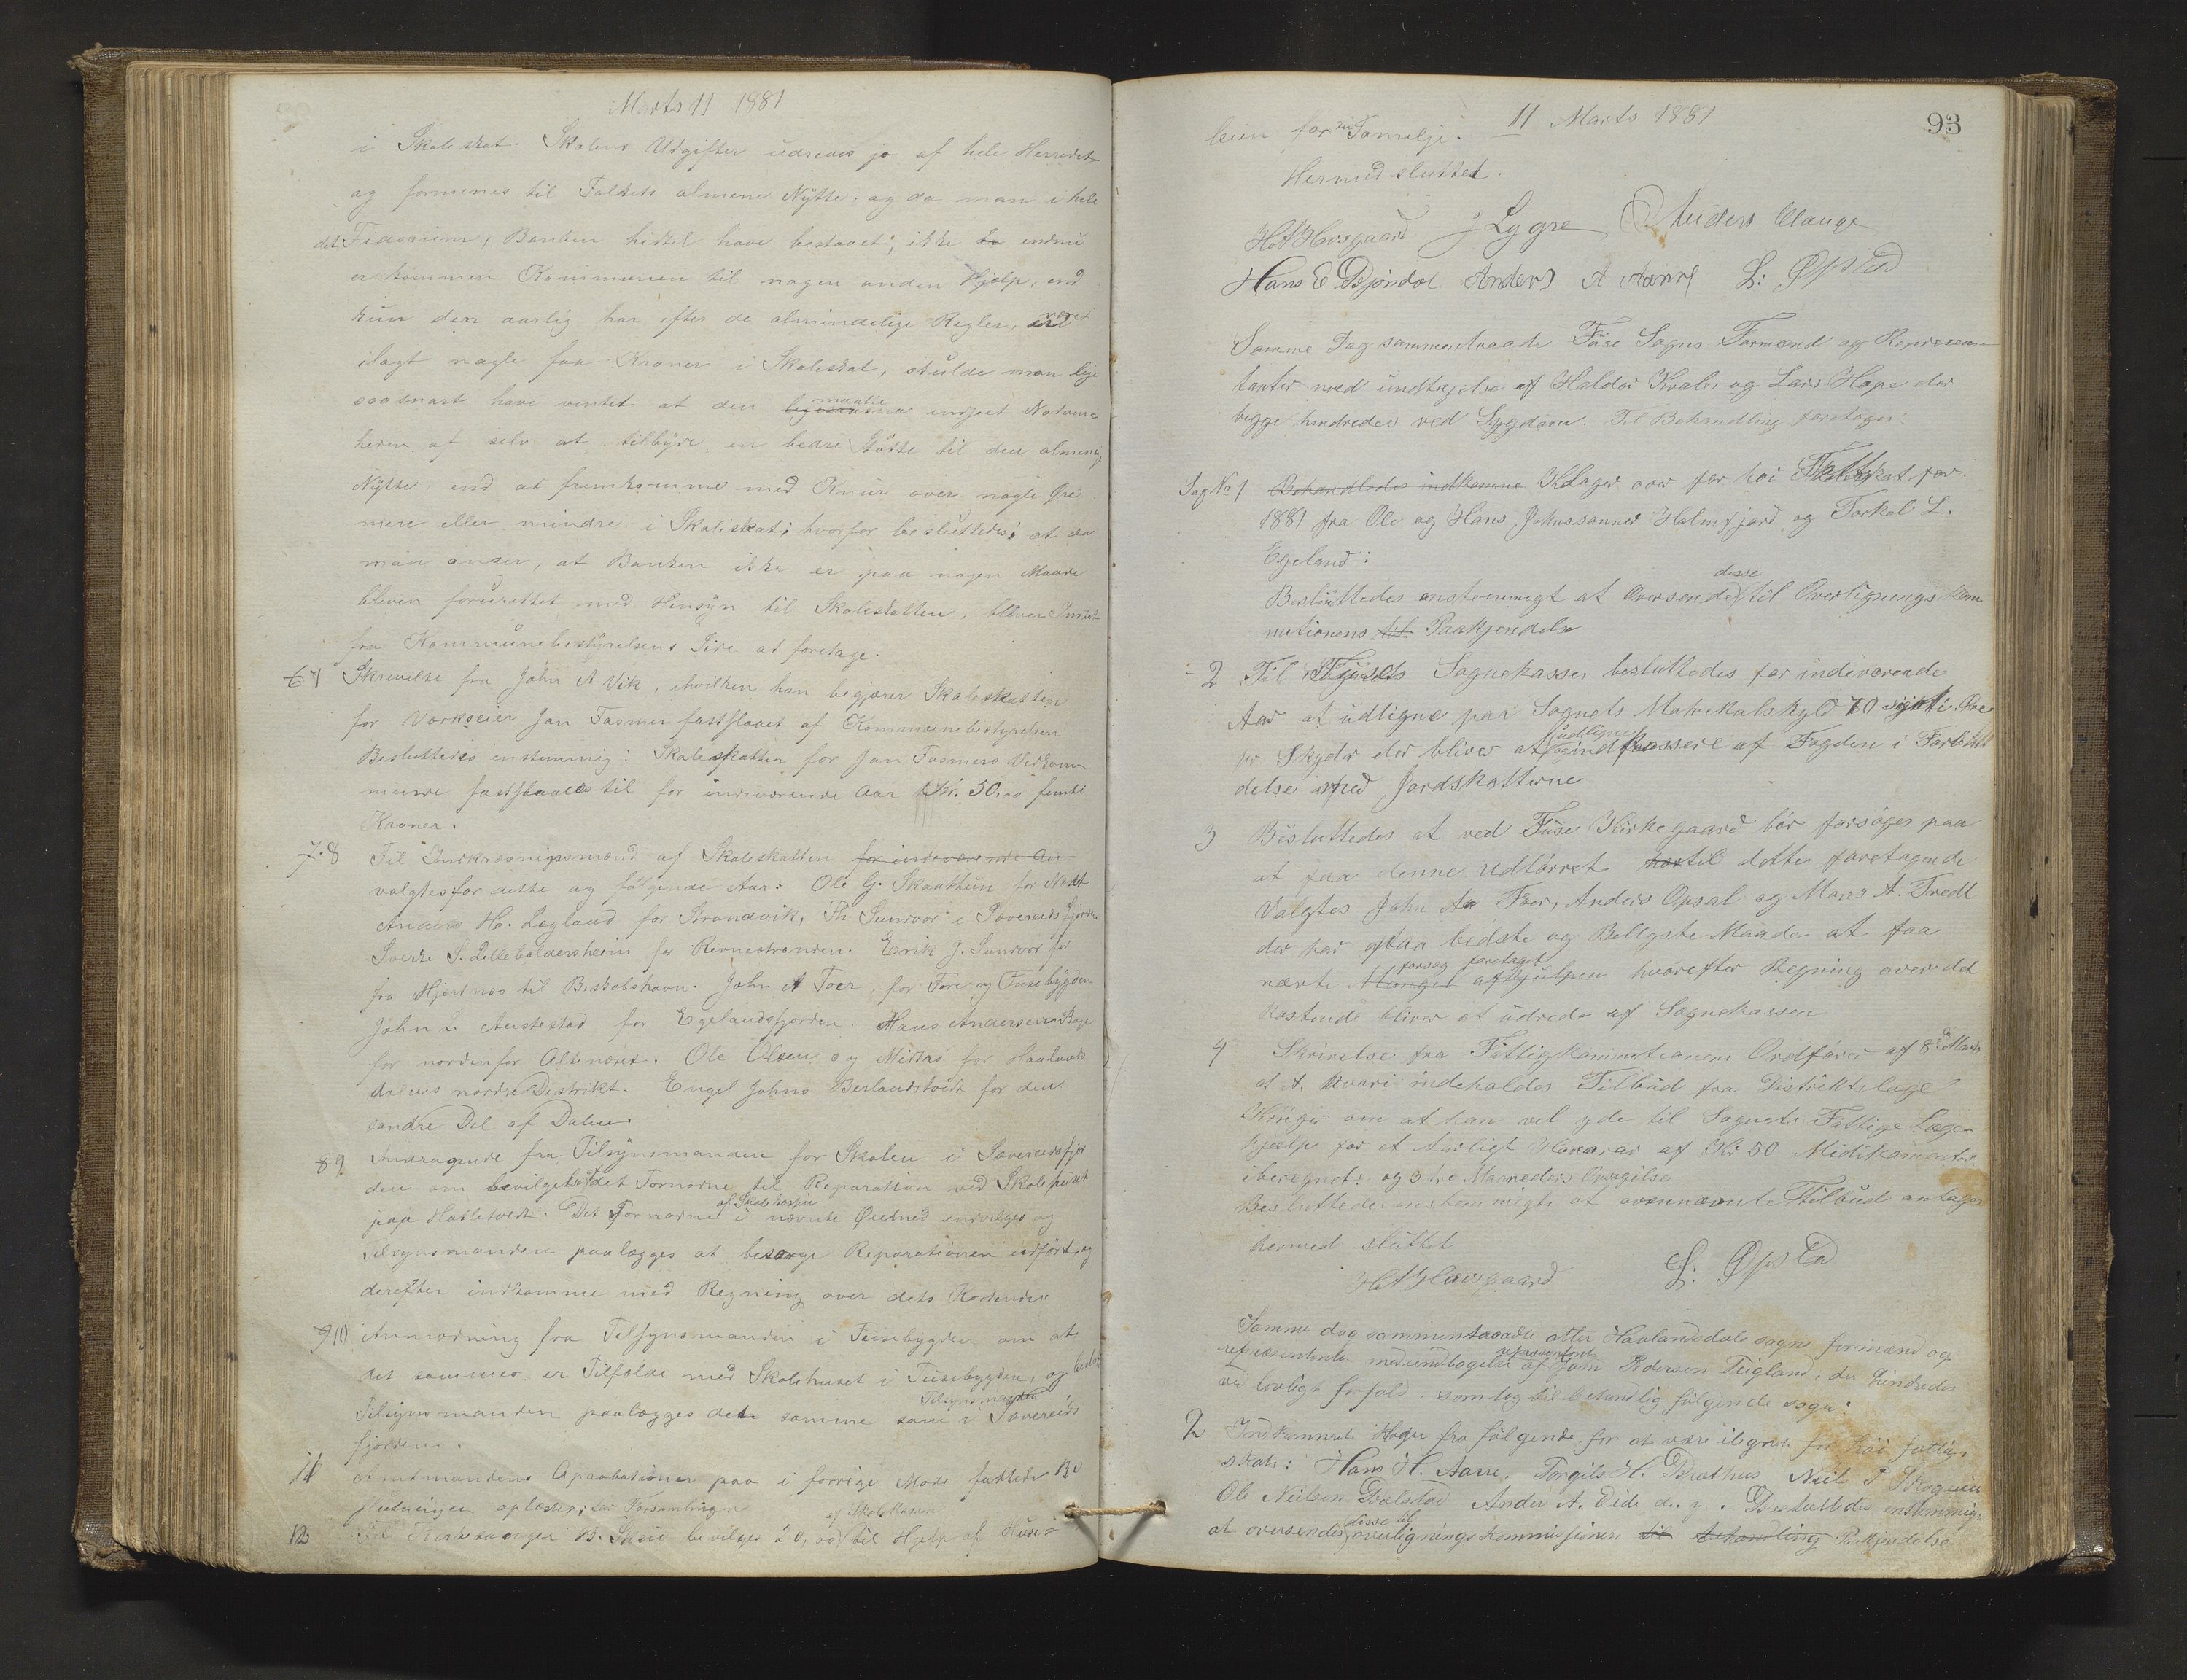 Marts 11 1881
i Skoleskat. Skolens Udgifter udredes jo af hele Herredet
og formenes til Folkets almene Nytte; og da man i hele
det Tidsrum, Banken hidtil have bestaaet, ikke endnu
er kommen Kommunen til nogen anden Hjælp, end
kun den aarlig har efter de almindelige Regler, været
ilagt nogle faa Kroner i Skoleskat, skulde man lige
saasnart have ventet at den maatte indseet Nødven=
heden af selv at tilbyde en bedre Støtte til den almene
Nytte end at fremkomme med Knur over nogle Øre
mere eller mindre i Skoleskat; hvorfor besluttedes: at da
man anser, at Banken ikke er paa nogen Maade
bleven forurettet med Hensyn til Skoleskatten, bliver Inted
fra Kommunebestyrelsens Side at foretage.
67 Skrivelse fra John A Vik, i hvilken han begjærer Skoleskatten
for Værkseier Jan Fasmer fastslaaet af Kommunebestyrelsen
Besluttedes enstemmig: Skoleskatten for Jan Fasmers Vedkom
mende fastslaaes til for indeværende Aar Kr. 50.00 femti
Kroner.
7.8 Til Indkrævningsmænd af Skoleskatten for indeværende Aar
valgtes for dette og følgende Aar: Ole G. Skaathun for
Anders H. Legland for Strandvik, Th. Sundvor i Sævereidsfjorden
Sverke S. Lillebaldersheim for Revnestranden. Erik J. Sundvor for
fra Hjertnes til Biskobshavn. John A Foer, for Fore og Fusebygden
John L. Austestad for Egelandsfjorden. Hans Andersen
for nordenfor Altenæset. Ole Olsen og for Haalands
dalens nordre Distrikt. Engel Johns Berlandstveit for den
søndre Del af Dalen.
89 Andragende fra Tilsynsmanden for Skolen i Sævereidsfjor
den om bevilgelse det Fornødne til Reparation ved Skolehuset
paa Hatletvedt. Det Fornødne af Skolekassen i nævnte Øiemed indvilges og
Tilsynsmanden paalægges at besørge Reparationen udført og
derefter indkomme med Regning over dets Kostende
910 Anmodning fra Tilsynsmanden i Fusebygden om at
det sammes er Tilfælde med Skolehuset i Fusebygden, og
Tilsynsmanden paalægges det samme som Tilsynsmanden i Sævereids
fjorden.
11 Amtmandens Aprobationer paa i forrige Møde fattede Be
slutninger oplæstes for Forsamlingen
12 Til Kirkesanger B. Skeie bevilges af Skolekassen 20,00 til Hjelp af Huse
11 Marts 1881
93
leien for en Familje.
Hermed sluttet.
H A Hovsgaard J Lygre Anders Vange
Hans E Bjørndal Anders A L: Øpstad
Samme Dag sammentraade Fuse Sogns Formænd og Repræsen=
tanter med undtagelse af Haldor Kvales og Lars Hope der
begge hindredes ved Sygdom. Til Behandling foretoges:
Sag No 1 Behandledes indkomne Klager over for høi Fattigskat for
1881 fra Ole og Hans Johnssønner Holmefjord og Torkel L.
Egeland:
Besluttedes enstemmigt at Oversende disse til Overligningskom
mitionens til Paakjendelse
- 2 Til Sognekasse besluttedes for indeværende
Aar at udligne paa Sognets Matrikulskyld 70 sytti Øre
pr Skylds der bliver at udligne og indkassere af Fogden i Forbind
delse med Jordskatterne
3 Besluttedes at ved Fuse Kirkegaard bør forsøges paa
at faa denne udtørret til dette foretagende
Valgtes John A Foer, Anders Opsal og Mons A. Tredt
der har paa bedste og Belligste Maade at faa
nævnte Mangel forsøg foretaget afhjulpen hvorefter Regning over det
Kostende bliver at udrede af Sognekassen
4 Skrivelse fra Fattigkommisionens Ordfører af 8de Marts
d A. hvori indeholdes Tilbud fra Distriktslæge
Krüger om at han vil yde til Sognets Fattige Læge-
hjælp for et Aarligt Honorar af Kr 50 Midikamenter
iberegnet; og 3 tre Maaneders Opsigelse
Besluttedes enstemmigt at ovennævnte Tilbud antages
hermed sluttet
H A Hovsgaard L: Øpstad
Samme dag sammentraadte atter Haalandsdals sogns formænd og
repræsentanter med undtagelse af repræsentant John Pedersen Teigland, der hindredes
ved lovligt forfald. som tog til behandling følgende sager:
2 Indkomne Klager fra følgende for at være ilignet for høi fattig
skat: Hans H. Aarre, Torgils H. Bræthus Neil T Skogseie
Ole Neilsen Balstad Anders A. Eide d. y. Besluttedes enstemmig
at oversendes disse til overligningskommisjonen til behandling Paakjendelse